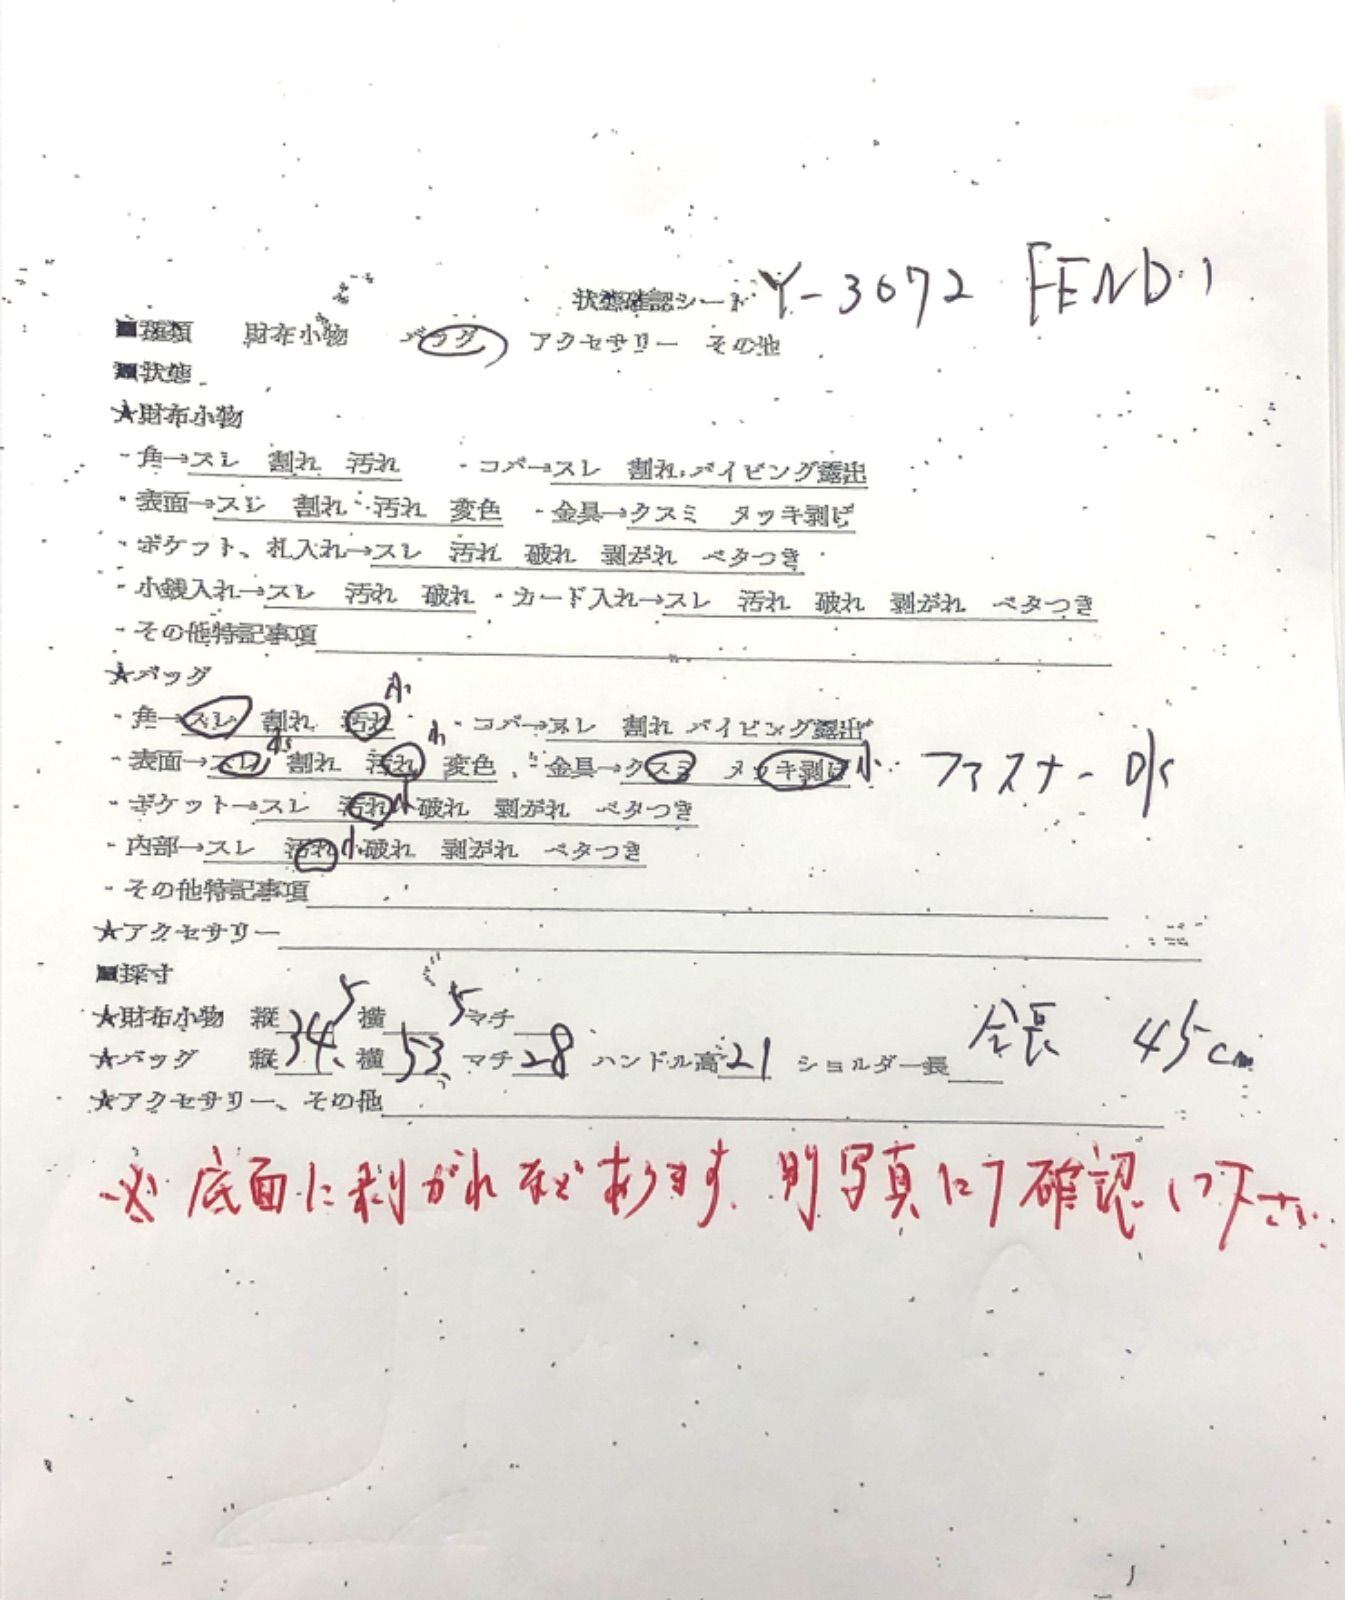 状態確認シート Y-3072 FENDI
■種類 財布小物 バッグ アクセサリー その他
■状態
★財布小物
・角→スレ 割れ 汚れ ・コバ→スレ 割れ パイピング露出
・表面→スレ 割れ 汚れ 変色 ・金具→クスミ メッキ剥げ
・ポケット、札入れ→スレ 汚れ 破れ 剥がれ ベタつき
・小銭入れ→スレ 汚れ 破れ ・カード入れ→スレ 汚れ 破れ 剥がれ ベタつき
・その他特記事項
★バッグ
・角→スレ 割れ 汚れ小 ・コバ→スレ 割れ パイピング露出
・表面→スレ小 割れ 汚れ小 変色 ・金具→クスミ メッキ剥げ小 ファスナー OK
・ポケット→スレ 汚れ小 破れ 剥がれ ベタつき
・内部→スレ 汚れ小 破れ 剥がれ ベタつき
・その他特記事項
★アクセサリー
■採寸
★財布小物 縦 横 マチ
★バッグ 縦34.5 横53.5 マチ28 ハンドル高21 ショルダー長 全長 45cm
★アクセサリー、その他
※底面に剥がれ等があります。別写真にて確認して下さい。